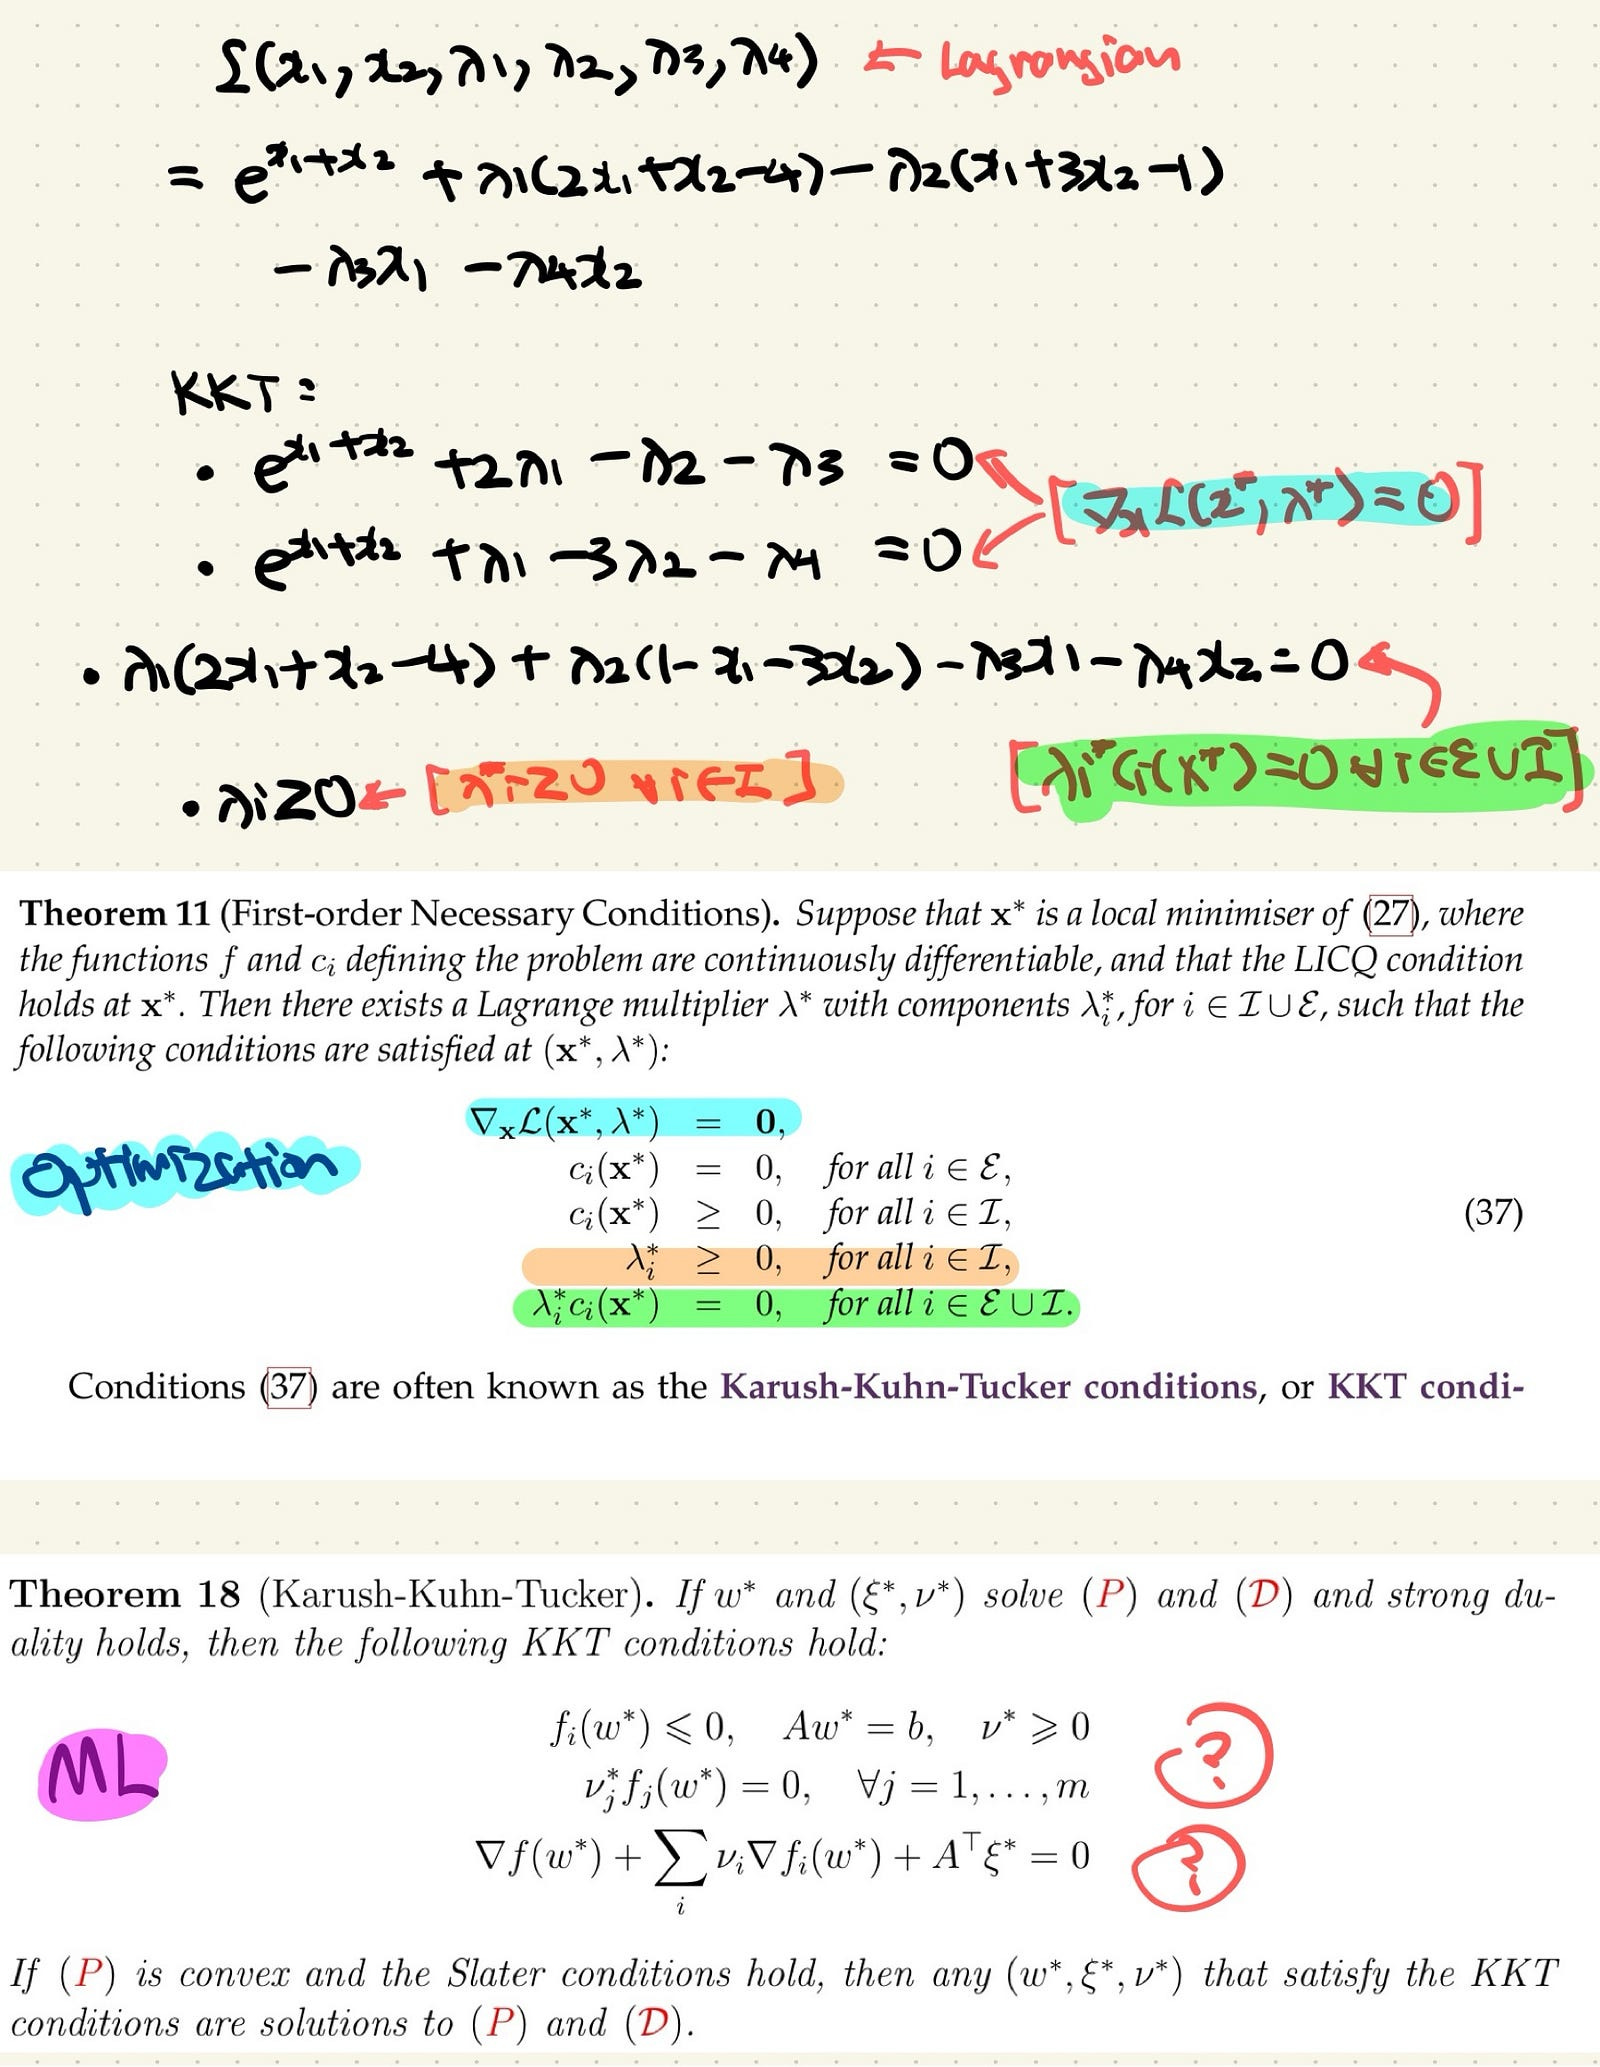 L(x₁, x₂, λ1, λ2, λ3, λ4) ← Lagrangian
= e^{x₁+x₂} + λ1(2x₁+x₂-4) - λ2(x₁+3x₂-1)
- λ3x₁ - λ4x₂
KKT:
• e^{x₁+x₂} + 2λ1 - λ2 - λ3 = 0
[∇ₓL(x*, λ*) = 0]
• e^{x₁+x₂} + λ1 - 3λ2 - λ4 = 0
• λ1(2x₁+x₂-4) + λ2(1-x₁-3x₂) - λ3x₁ - λ4x₂ = 0
• λi ≥ 0 ← [λ*i ≥ 0 ∀i∈I] [λi*Ci(x*) = 0 ∀i∈ℰ∪I]
Theorem 11 (First-order Necessary Conditions). Suppose that x* is a local minimiser of (27), where
the functions f and cᵢ defining the problem are continuously differentiable, and that the LICQ condition
holds at x*. Then there exists a Lagrange multiplier λ* with components λᵢ*, for i ∈ I ∪ ℰ, such that the
following conditions are satisfied at (x*, λ*):
∇ₓL(x*, λ*) = 0,
optimization
cᵢ(x*) = 0, for all i ∈ ℰ,
cᵢ(x*) ≥ 0, for all i ∈ I, (37)
λᵢ* ≥ 0, for all i ∈ I,
λᵢ*cᵢ(x*) = 0, for all i ∈ ℰ ∪ I.
Conditions (37) are often known as the Karush-Kuhn-Tucker conditions, or KKT condi-
Theorem 18 (Karush-Kuhn-Tucker). If w* and (ξ*, ν*) solve (P) and (D) and strong du-
ality holds, then the following KKT conditions hold:
fᵢ(w*) ⩽ 0, Aw* = b, ν* ⩾ 0 ?
ML
νⱼ*fⱼ(w*) = 0, ∀j = 1, . . . , m
∇f(w*) + ∑ᵢ νᵢ∇fᵢ(w*) + A⊤ξ* = 0 ?
If (P) is convex and the Slater conditions hold, then any (w*, ξ*, ν*) that satisfy the KKT
conditions are solutions to (P) and (D).